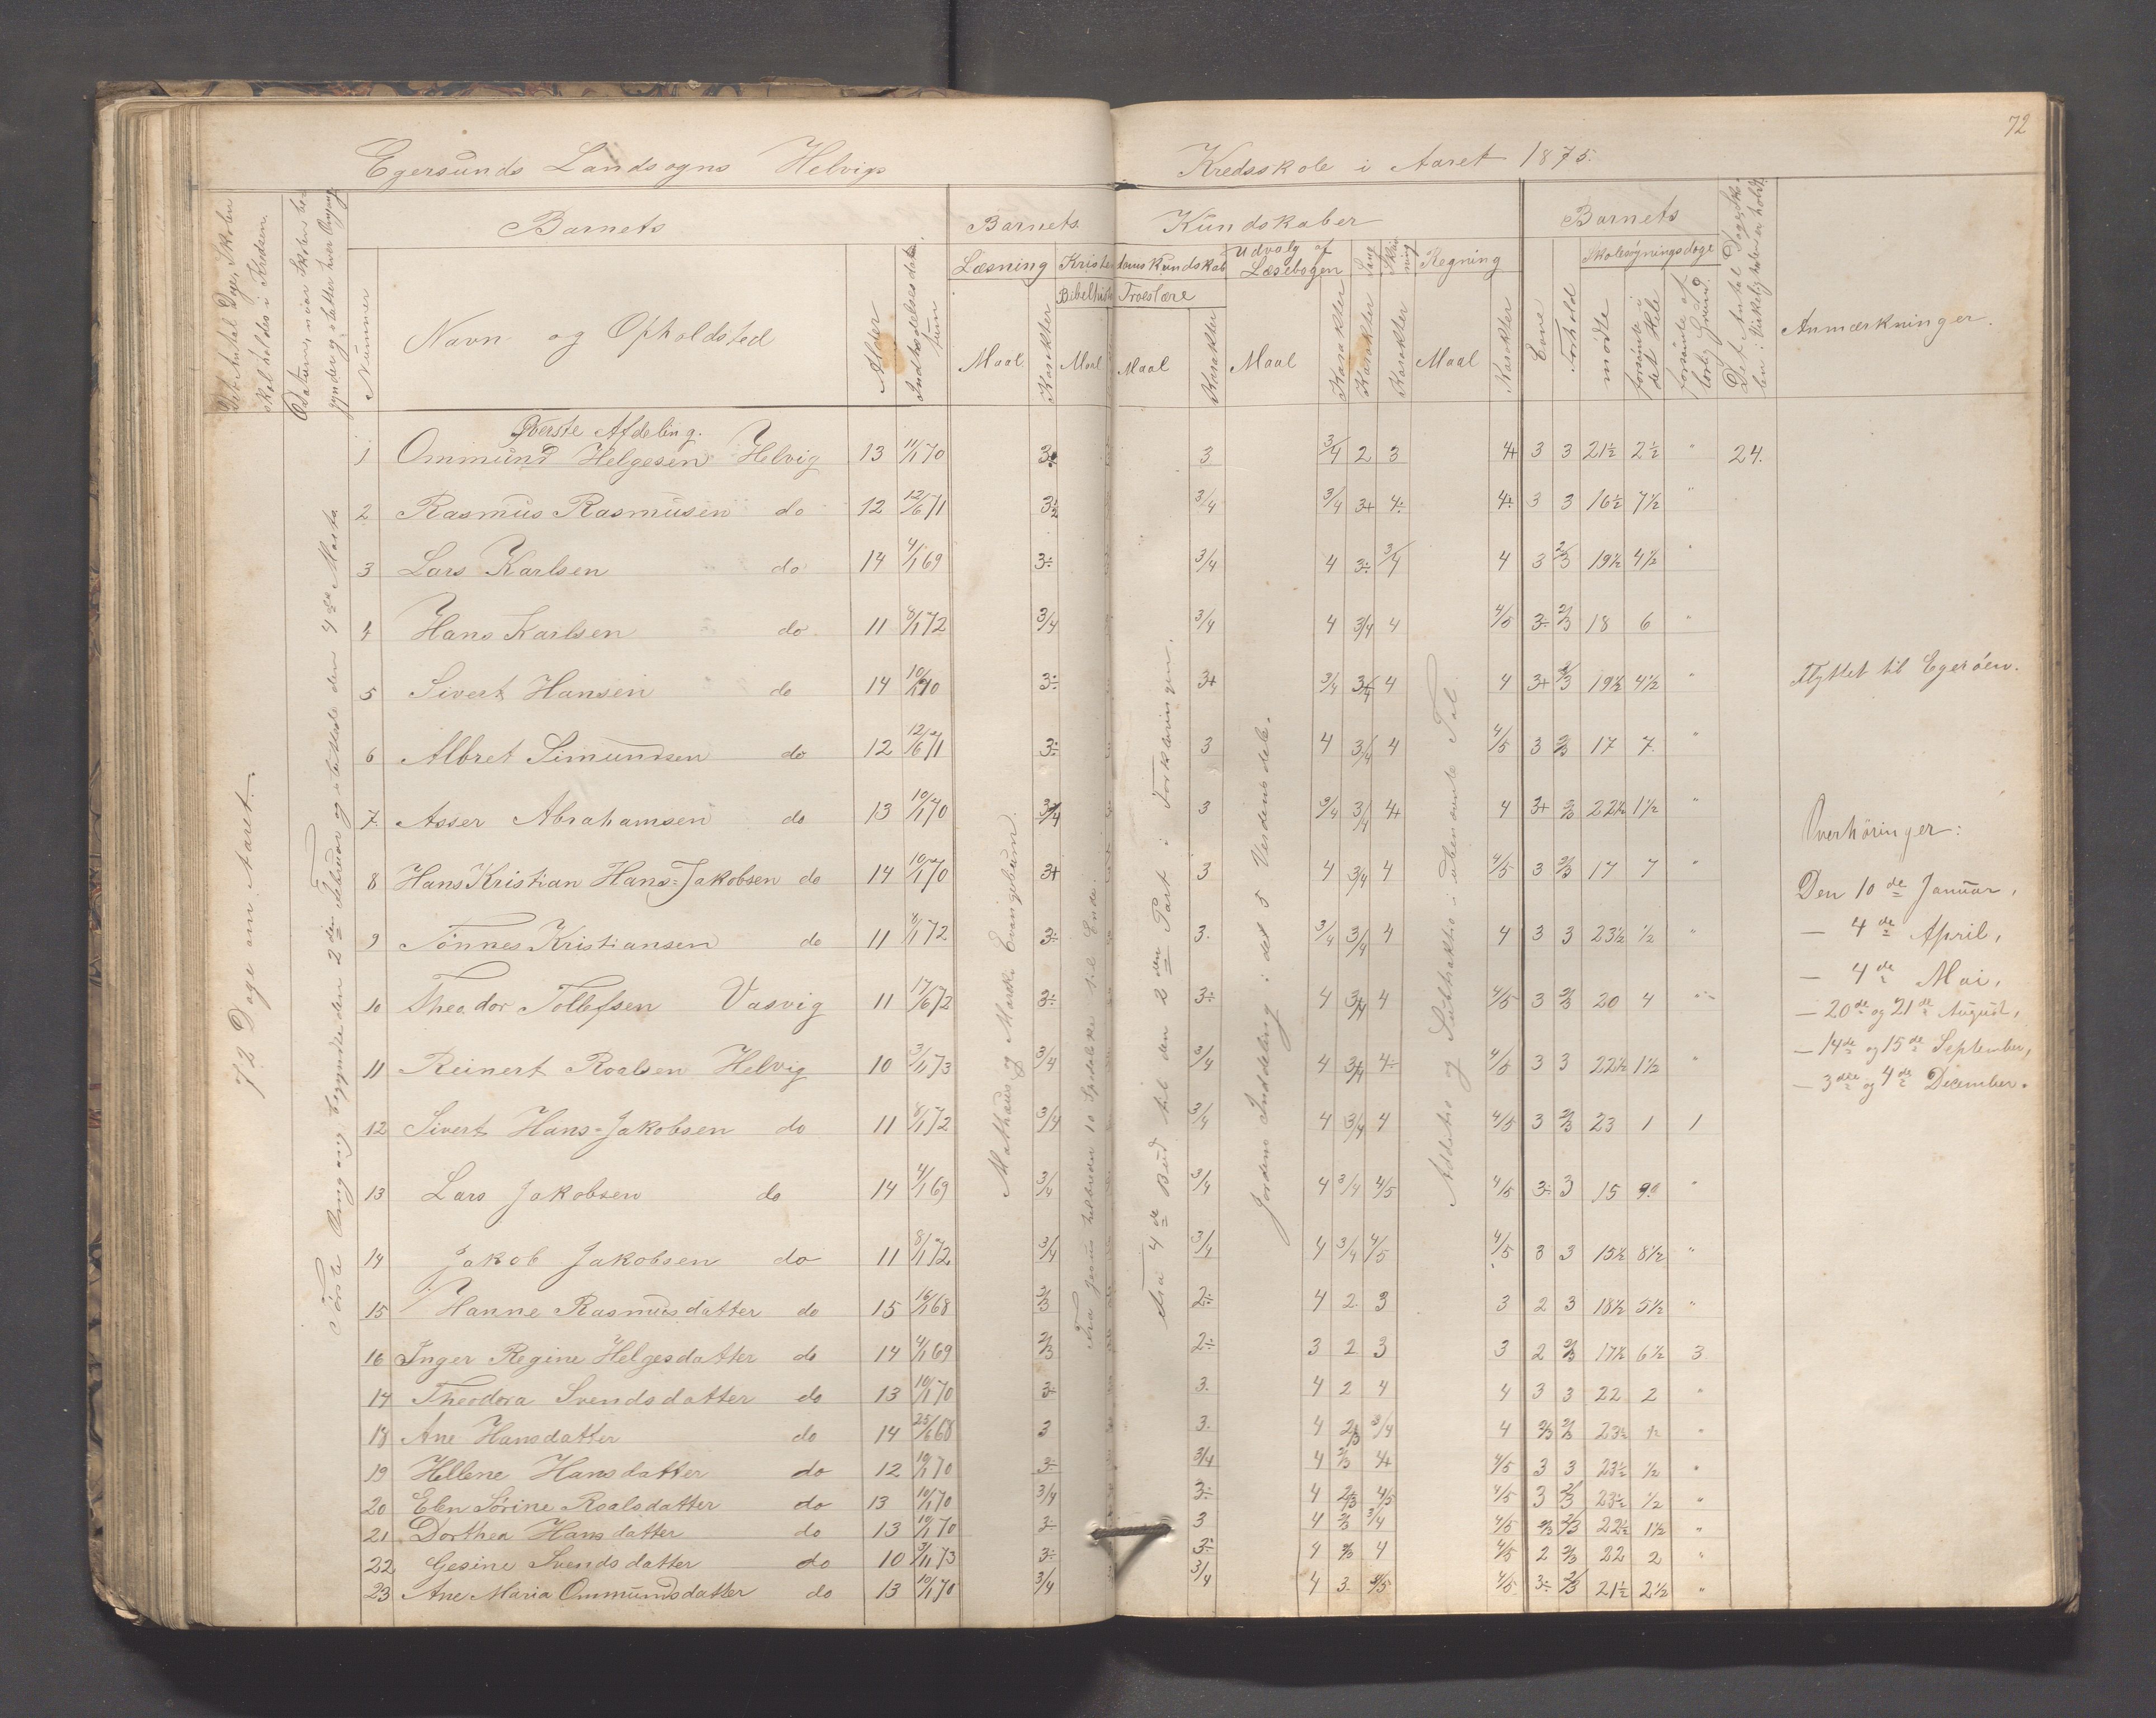 72
Egersunds Landsogns Helvigs Kredsskole i Aaret 1875.
Det Antal Dage, Skolen skal holdes i Kredsen.
Datum, naar Skolen begynder og slutter hver Omgang
Barnets
Nummer
Navn og Opholdsted
Alder
Indtrædelsesdatum
Barnets Kundskaber
Læsning
Kristendomskundskab
Bibelhist.
Troeslære
Udvalg af Læsebogen
Sang
Skrivning
Regning
Maal
Karakter
Maal
Maal
Karakter
Maal
Karakter
Karakter
Karakter
Maal
Karakter
Barnets
Evne
Forhold
Skolesøgningsdage
mødte
forsømte i det Hele
forsømte af lovlig Grund
Det Antal Dage, Skolen i Virkeligheden er holdt.
Anmærkninger.
72 Dage om Aaret.
Første Omgang begyndte den 2den Februar og sluttede den 4de Marts
Mathæus og Marcks Evangelium.
Fra Jesus helbreder 10 Spedalske til Ende.
Fra 4de Bud til den 2den Part i Forklaringen.
Jordens Inddeling i det 5 Verdensdele.
Additio og Subtraktio i ubenævnte Tal.
Øverste Afdeling.
1 Ommund Helgesen Helvig 13 11/1 70 3 3 3/4 2 3 4+ 3 3 21½ 2½ " 24.
2 Rasmus Rasmusen do 12 12/6 71 3 3/4 3/4 3+ 4÷ 4÷ 3 3 16½ 7½ "
3 Lars Karlsen do 14 4/1 69 3÷ 3/4 4 3÷ 3/4 4 3 2/3 19½ 4½ "
4 Hans Karlsen do 11 8/1 72 3/4 3/4 4 3/4 4 4/5 3÷ 2/3 18 6 "
5 Sivert Hansen do 14 10/1 70 3÷ 3+ 3/4 3/4 4 4 3+ 2/3 19½ 4½ " Flyttet til Egerøen.
6 Albret Simundsen do 12 12/6 71 3÷ 3 4 3/4 4 4/5 3 2/3 17 7 "
7 Asser Abrahamsen do 13 10/1 70 3/4 3 3/4 3/4 4+ 4 3+ 2/3 22½ 1½ "
8 Hans Kristian Hans=Jakobsen do 14 10/1 70 3+ 3 4 3/4 4 4/5 3 2/3 17 7 "
9 Tønnes Kristiansen do 11 8/1 72 3÷ 3. 3/4 3/4 4 4 3 3 23½ ½ "
10 Theodor Tollefsen Vasvig 11 17/6 72 3÷ 3÷ 4 3/4 4 4/5 3 2/3 20 4 "
11 Reinert Roalsen Helvig 10 3/11 73 3/4 3/4 4 3/4 4÷ 4/5 3 3 22½ 1½ "
12 Sivert Hans=Jakobsen do 11 8/1 72 3/4 3/4 4 3/4 4 4/5 3 2/3 23 1 1
13 Lars Jakobsen do 14 4/1 69 3/4 3/4 4 3/4 4/5 4/5 3÷ 3 15 9 "
14 Jakob Jakobsen do 11 8/1 72 3/4 3/4 4 3/4 4/5 4/5 3 3 15½ 8½ "
15 Hanne Rasmusdatter do 15 16/1 68 2/3 2÷ 4 2 3 3 2 3 18½ 5½ "
16 Inger Regine Helgesdatter do 14 4/1 69 2/3 2÷ 3 2 3 3 2 2/3 17½ 6½ 3
17 Theodora Svendsdatter do 13 10/1 70 3÷ 3. 4 2 4 4 3 3 22 2 "
18 Ane Hansdatter do 14 25/6 68 3 3. 4 2/3 3/4 4 2/3 2/3 23½ ½ "
19 Hellene Hansdatter do 12 10/1 70 3÷ 3/4 4 2/3 4+ 4/5 3 3 23½ ½ "
20 Elen Sørine Roalsdatter do 13 10/1 70 3/4 3÷ 4 2/3 4/5 4/5 3 2/3 23½ ½ "
21 Dorthea Hansdatter do 13 10/1 70 3÷ 3 4 2/3 3/4 4/5 2/3 2/3 22½ 1½ "
22 Gesine Svendsdatter do 10 3/11 73 3÷ 3÷ 4 2/3 4 4/5 2 2/3 22 2 "
23 Ane Maria Ommundsdatter do 13 10/1 70 3/4 3/4 4 3 4/5 3÷ 2/3 21½ 2½ "
Overhøringer:
Den 10de Januar,
— 4de April,
— 4de Mai,
— 20de og 21de August,
— 14de og 15de September,
— 3die og 4de December.